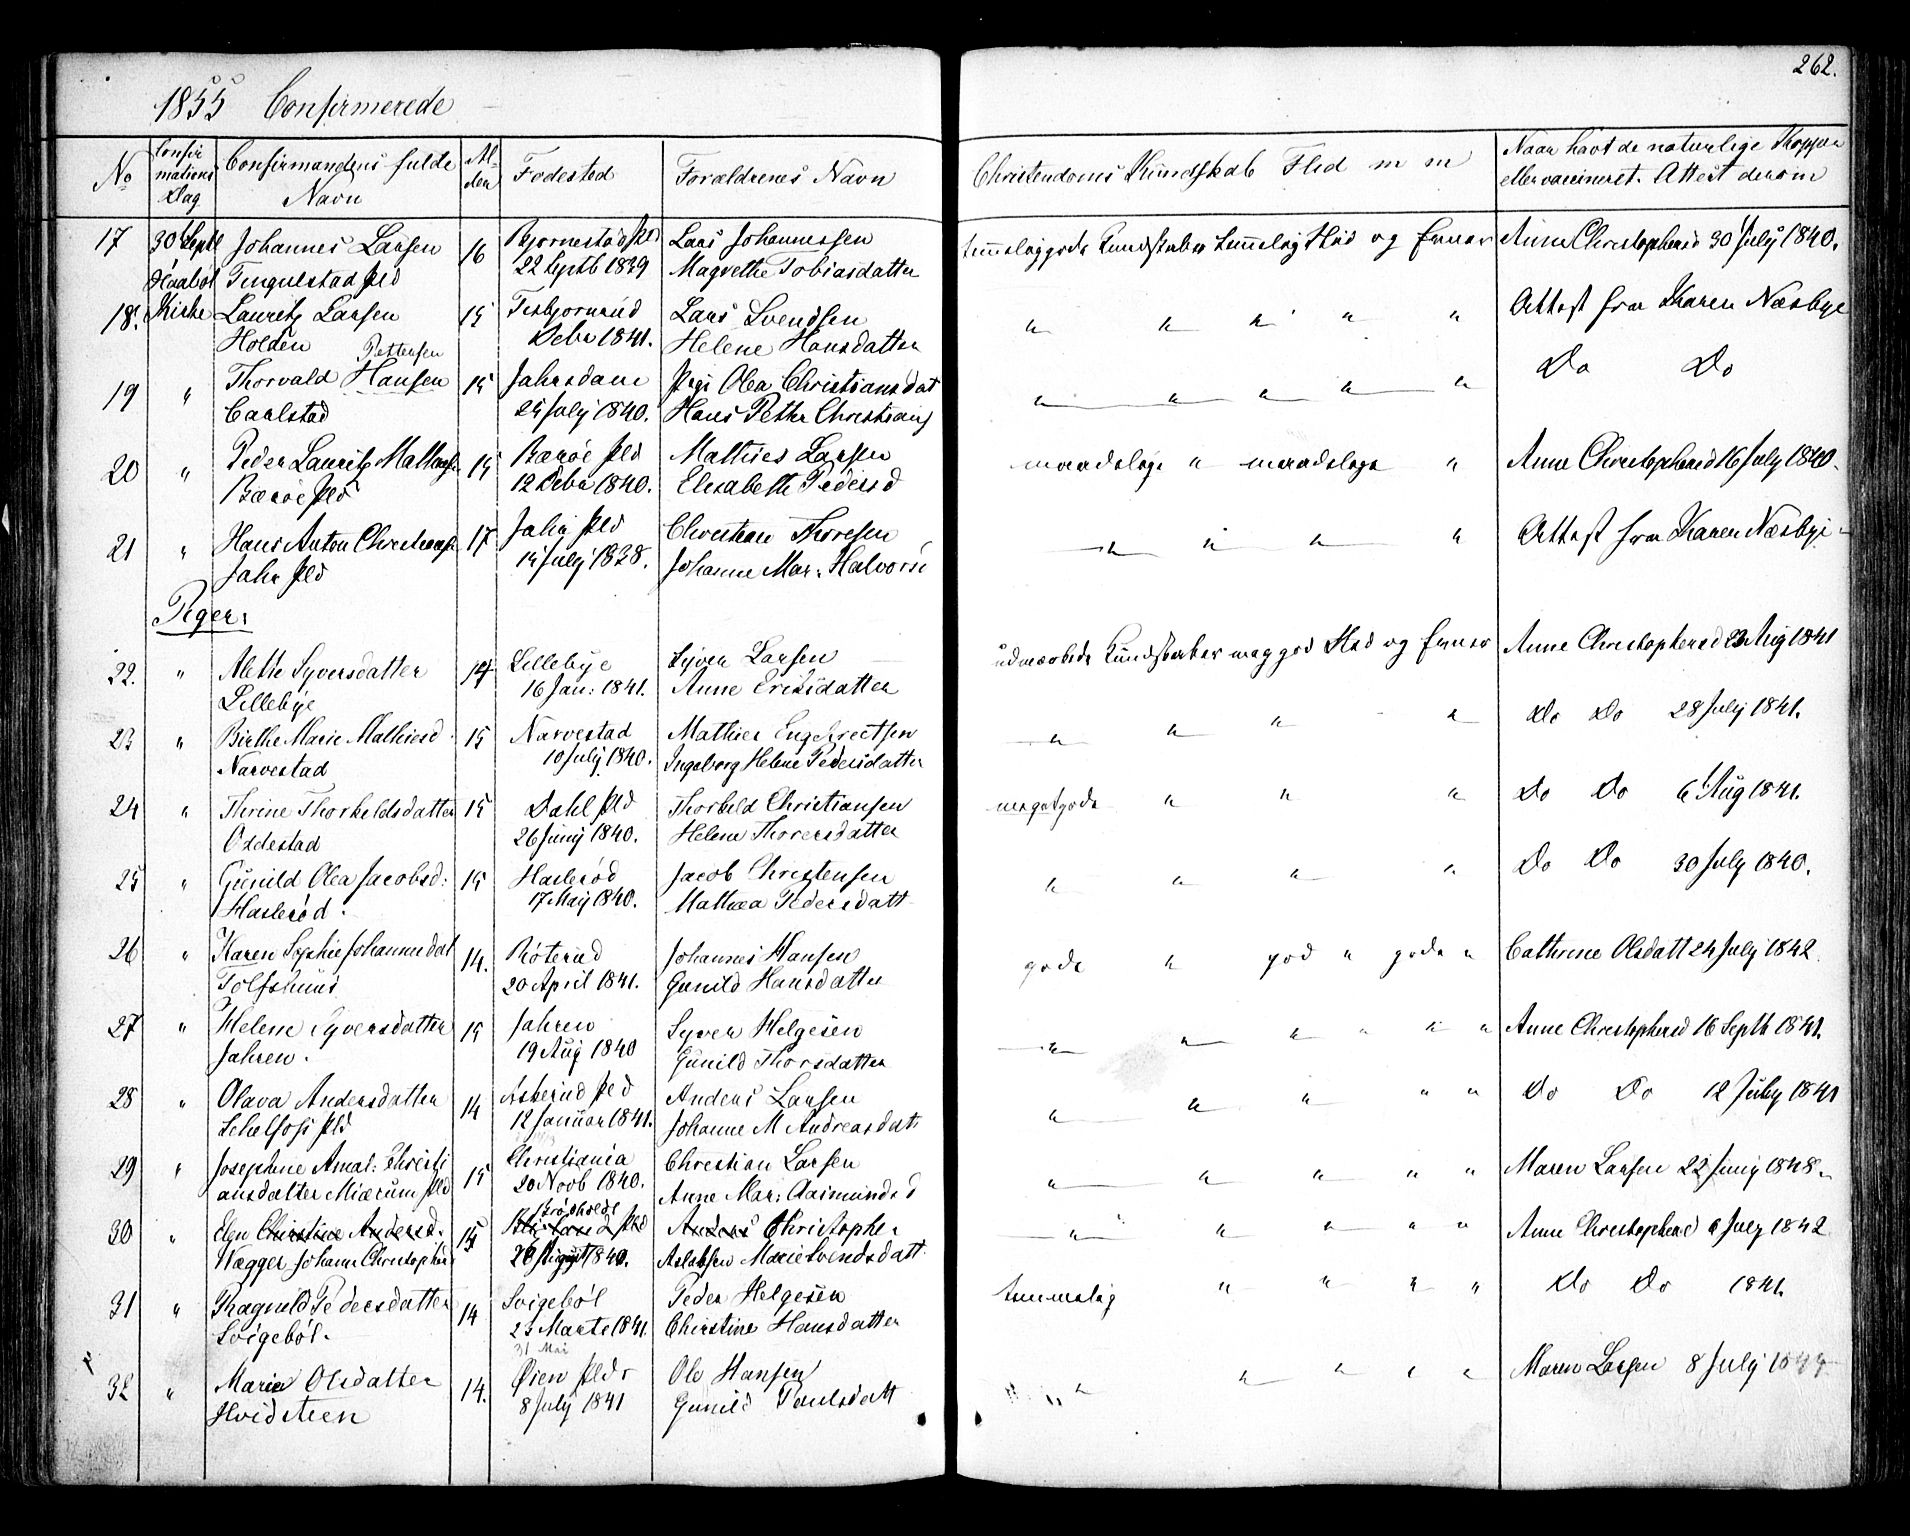 262.
1855 Confirmerede
No
Confir
mations
Dag
Confirmandens fulde
Navn
Al-
der
Fødested
Forældrenes Navn
Christendoms Kundskab Flid m m
Naar havt de naturlige Kopper
eller vaccineret. Attest derom
17 30 Septb Johannes Larsen 16 Bjørnestad Pld Lars Johannessen Kundskaber Flid og Anne Christophersd 30 July 1840.
Tingulstad Pld 22 Septb 1839 Magrethe Tobiasdatter
18. Kirke Lauritz Larsen 15 Lars Svendsen " " " " " Attest fra Karen Næsbye
Holden Debr 1841. Helene Hansdatter
Pettersen
19 " Thorvald Hansen 15 Pigi Olea Christiansdat " " " " " Do Do
Carlstad 25 July 1840. Hans Petter Christians
20 " Peder Lauritz Mathies 15 Bærøe Pld Mathies Larsen maadelige " maadelige " Anne Christophersd 16 July 1840.
Bærøe Pld 12 Debr 1840. Elisabeth Pedersd
21 " Hans Anton Christians 17 Jahr Pld Christian Thoresen " " " " Attest fra Karen Næsbye
Jahr Pld 15 July 1838. Johanne Mar: Halvors
Piger:
22. " Alette Syversdatter 14 Lillebye Syver Larsen udmærkede Kundskaber meg god Flid og Anne Christophersd 23 Aug 1841
Lillebye 16 Jan: 1841. Anne Ericsdatter
23 " Birthe Marie Mathiesd. 15 Narvestad Mathies Engebrectsen " " " " Do Do 28 July 1841.
Narvestad 10 July 1840. Ingeborg Helene Pedersdatter
24 " Thrine Thorkeldsdatter 15 Dahl Pld Thorkeld Christiansen meget gode " " " Do Do 6 Aug 1841.
Oddestad 26 Juny 1840. Helene Thoresdatter
25 " Gunild Olea Jacobsd: 15 Haslerød Jacob Christensen " " " " Do Do 30 July 1840.
Haslerød. 17 May 1840. Mathea Pedersdatt
26 " Karen Sophie Johannesdat 14. Røterud Johannes Hansen gode " god " gode " Cathrine Olsdatt 24 July 1842.
Tolfshuus 20 April 1841. Gunild Hansdatter
27 " Helene Syversdatter 15 Jahren Syver Helgesen " " " " " " Anne Christophersd 16 Septb 1841.
Jahren. 19 Aug 1840 Gunild Thorsdatter
28 " Olava Andersdatter 14 Askerud Pld Anders Larsen " " " " " Do Do 12 July 1841
Pld 12 Januar 1841. Johanne M Andreasdat
29 " Josephine Amal: Christi 15 Christiania Christian Larsen " " " " " Maren Larsen 22 Juny 1848.
ansdatter Miærum Pld 20 Novb 1840. Anne Mar: Aaimundsd
30 " Elen Christine Andersd. 15 Pld Anders Christophe " " " " " Anne Christophersd July 1842
Wægger Johanne Christophers August 1840. Aslaksen Marie Svendsdatt
31 " Ragnild Pedersdatter 14 Svigebøl Peder Helgesen temmelig " " " " Do Do 1841.
Svigebøl. 23 Marts 1841. Christine Hansdatter
31 Mai
32 " Maria Olsdatter 14. Øien Pld Ole Hansen " " " " " Maren Larsen 8 July
Hvidsteen 8 July 1841 Gunild Paulsdatt